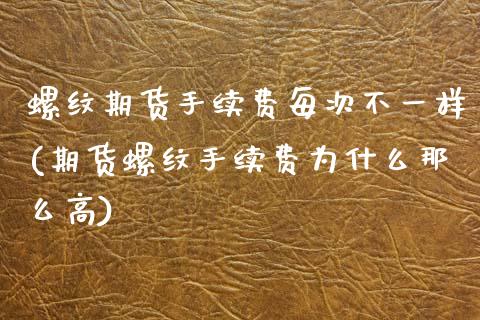 螺纹期货手续费每次不一样
(期货螺纹手续费为什么那
么高)